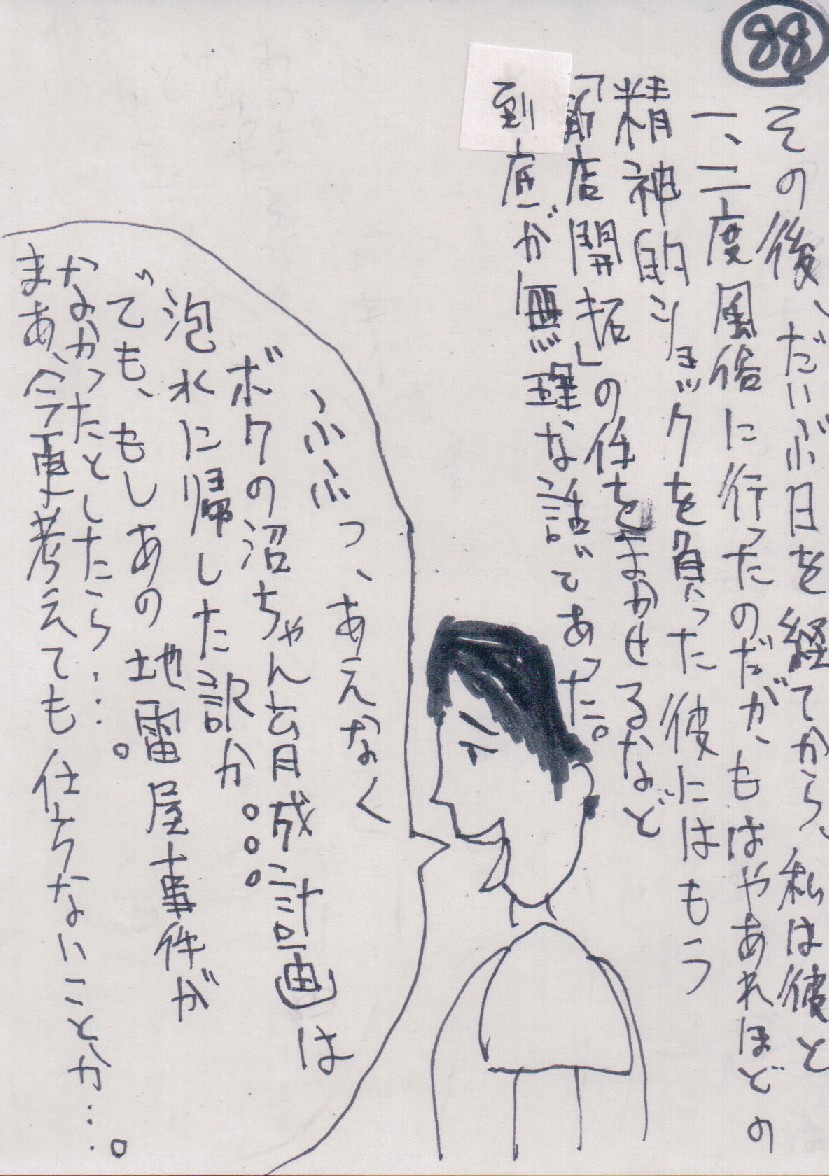 88
その後、だいぶ日を経てから、私は彼と
一、二度風俗に行ったのだが、もはやあれほどの
精神的ショックを負った彼にはもう
「新店開拓」の任をまかせるなど
到底が無理な話であった。
ふふふっ、あえなく
ボクの沼ちゃん育成計画は
泡水に帰した訳か...
でも、もしあの地雷屋事件が
なかったとしたら...。
まあ、今更考えても仕ちないことか...。